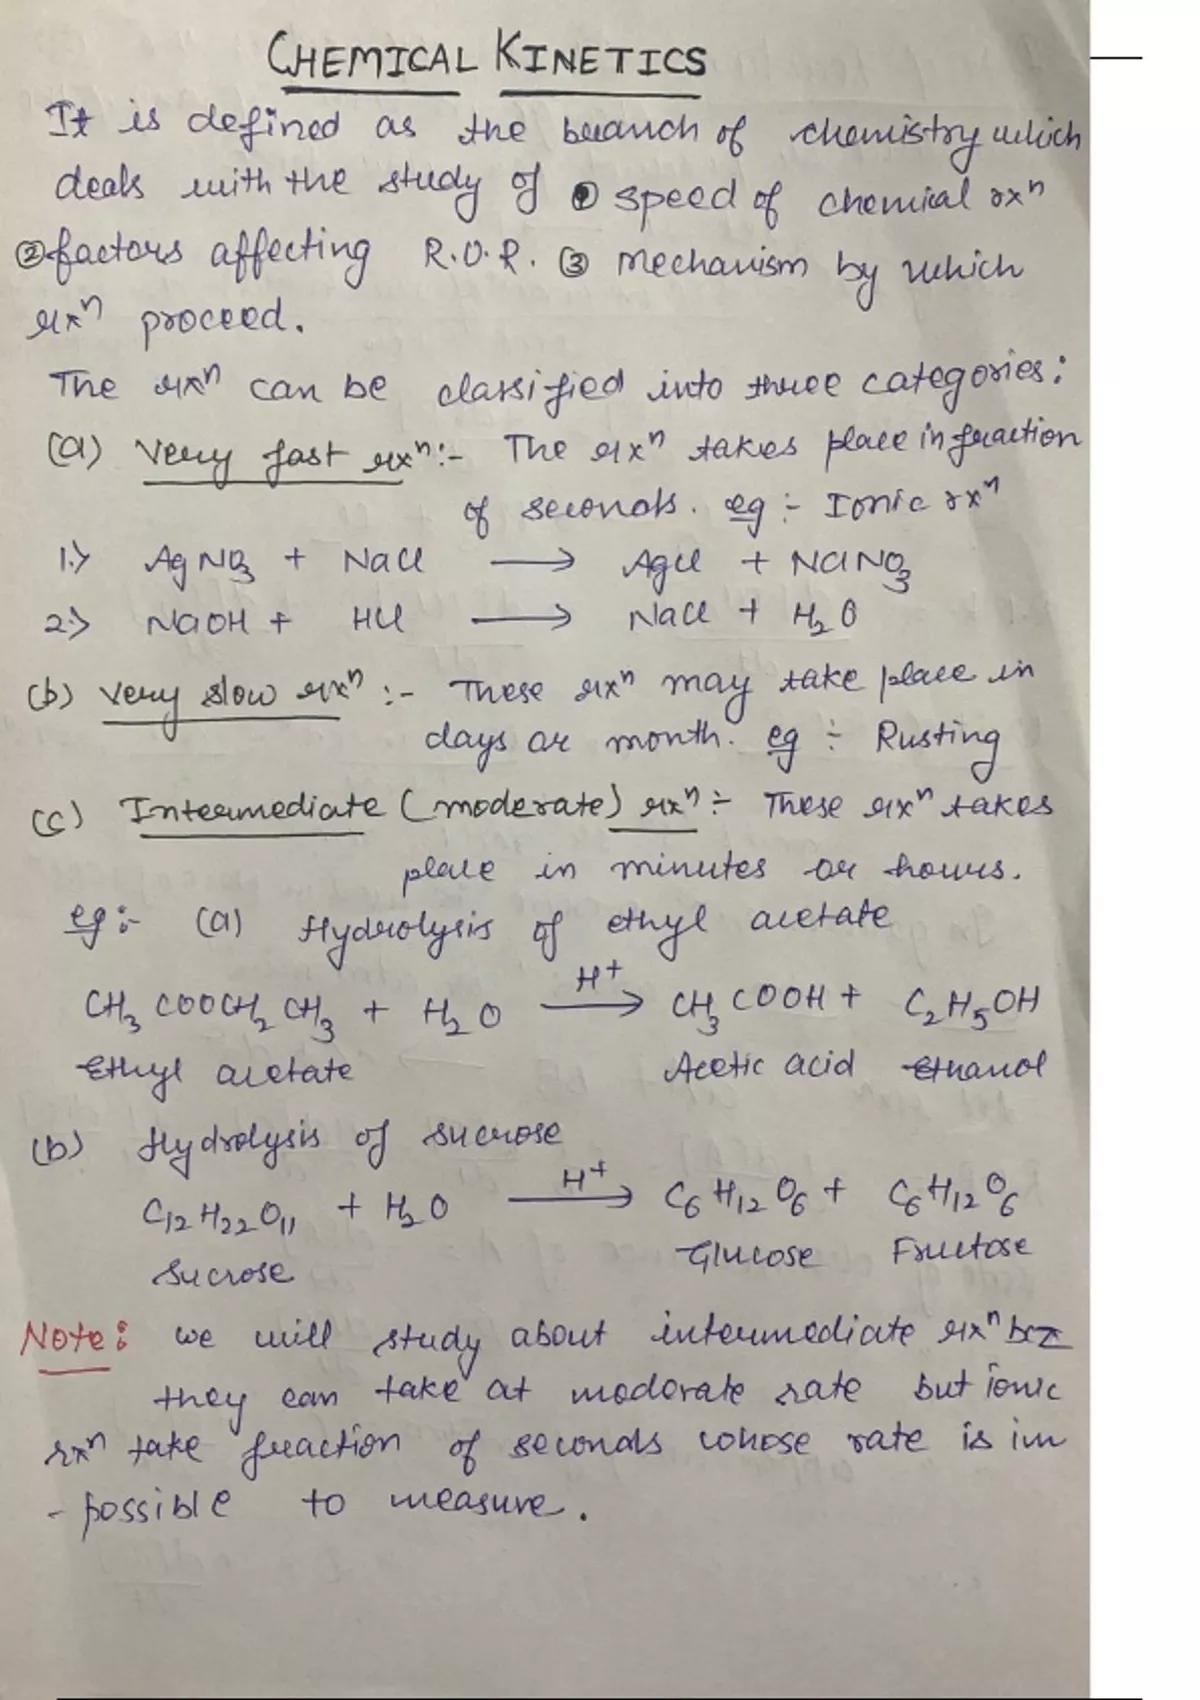 CHEMICAL KINETICS
It is defined as the branch of chemistry which
deals with the study of ① speed of chemical rxⁿ
② factors affecting R.O.R. ③ mechanism by which
rxⁿ proceed.
The rxⁿ can be classified into three categories:
(a) Very fast rxⁿ:- The rxⁿ takes place in fraction
of seconds. eg :- Ionic rxⁿ
1.> AgNO₃ + NaCl ⟶ AgCl + NaNO₃
2.> NaOH + HCl ⟶ NaCl + H₂O
(b) Very slow rxⁿ :- These rxⁿ may take place in
days or month. eg :- Rusting
(c) Intermediate (moderate) rxⁿ :- These rxⁿ takes
place in minutes or hours.
eg :- (a) Hydrolysis of ethyl acetate
H⁺
CH₃COOCH₂CH₃ + H₂O ⟶ CH₃COOH + C₂H₅OH
Ethyl acetate Acetic acid Ethanol
(b) Hydrolysis of sucrose
H⁺
C₁₂H₂₂O₁₁ + H₂O ⟶ C₆H₁₂O₆ + C₆H₁₂O₆
Sucrose Glucose Fructose
Note: we will study about intermediate rxⁿ bcz
they can take at moderate rate but ionic
rxⁿ take fraction of seconds whose rate is im
-possible to measure.